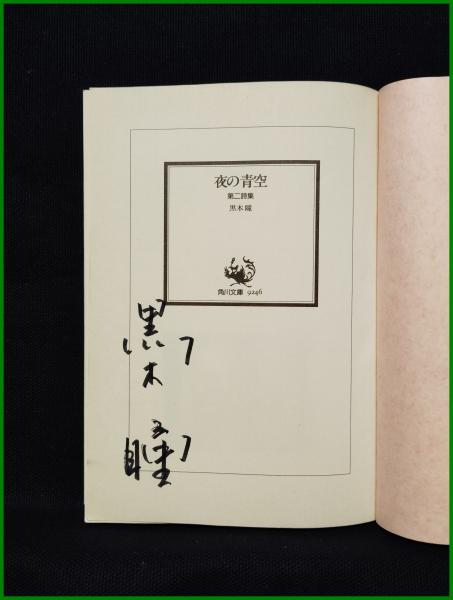 夜の青空
第二詩集
黒木 瞳
角川文庫 9246
黒木
瞳